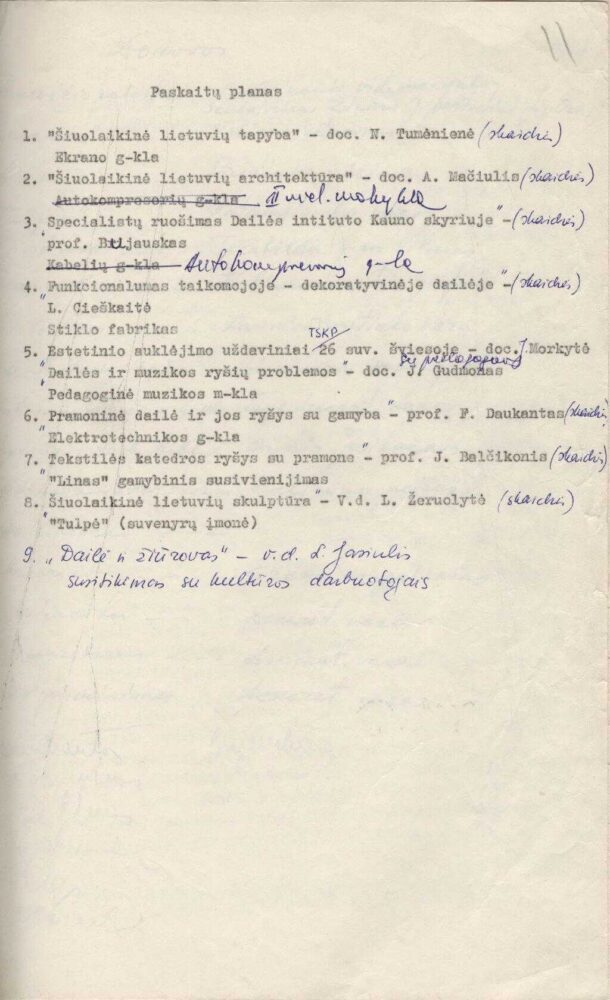 11
Paskaitų planas
1. "Šiuolaikinė lietuvių tapyba" - doc. N. Tumėnienė (skaidrės)
Ekrano g-kla
2. "Šiuolaikinė lietuvių architektūra" - doc. A. Mačiulis (skaidrės)
Autokompresorių g-kla II vid. mokykla
3. "Specialistų ruošimas Dailės intituto Kauno skyriuje" - (skaidrės)
prof. Biljauskas
Kabelių g-kla Autokompresorių g-la
4. "Funkcionalumas taikomojoje - dekoratyvinėje dailėje" - (skaidrės)
L. Cieškaitė
Stiklo fabrikas
TSKP
5. Estetinio auklėjimo uždaviniai 26 suv. šviesoje - doc. J. Morkytė
"Dailės ir muzikos ryšių problemos" - doc. J. Gudmonas
Pedagoginė muzikos m-kla
6. "Pramoninė dailė ir jos ryšys su gamyba" - prof. F. Daukantas (skaidrės)
Elektrotechnikos g-kla
7. "Tekstilės katedros ryšys su pramone" - prof. J. Balčikonis (skaidrės)
"Linas" gamybinis susivienijimas
8. "Šiuolaikinė lietuvių skulptūra" - V.d. L. Žeruolytė (skaidrės)
"Tulpė" (suvenyrų įmonė)
9. "Dailė ir žiūrovas" - v.d. L. Jasiulis
susitikimas su kultūros darbuotojais